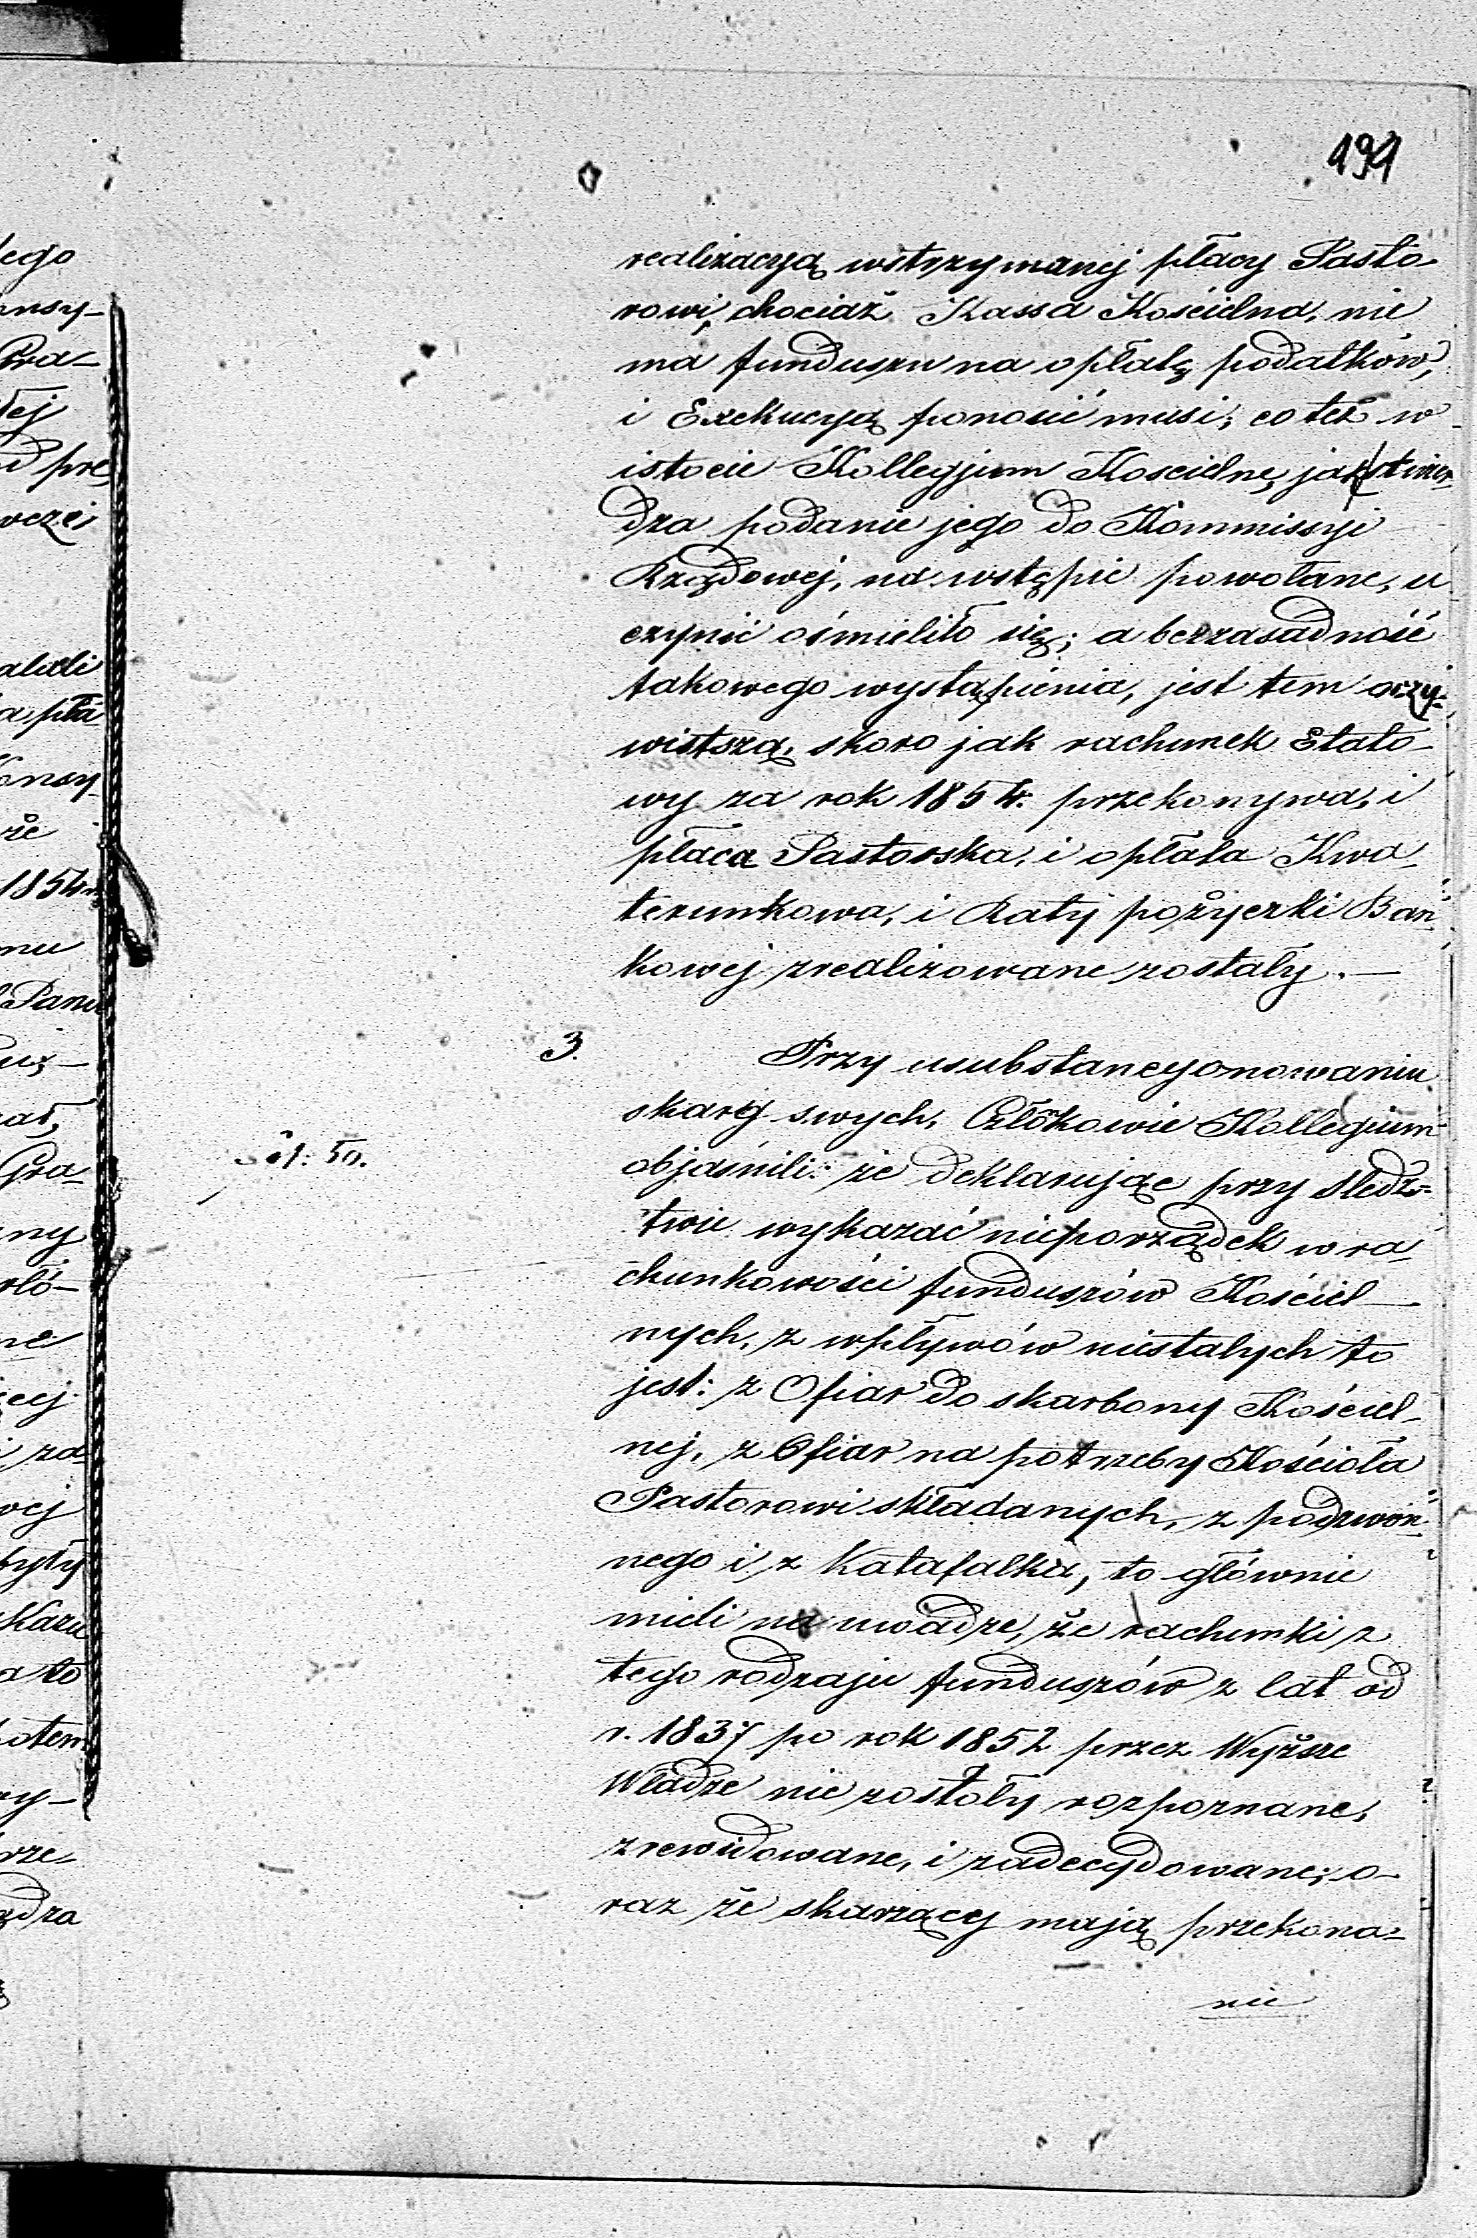 191
realizacyą wstrzymanej płacy Pasto-
rowi, chociaż Kassa Kościelna, nie
ma funduszu na opłatę podatków,
i Exekucyą ponosić musi; co też w
istocie Kollegjum Kościelne, jak stwier-
dza podanie jego do Kommissyi
Rządowej, na wstępie powołane, u-
czynić ośmieliło się; a bezzasadność
takowego wystąpienia, jest tem oczy-
wistszą, skoro jak rachunek Etato-
wy za rok 1854. przekonywa, i
płaca Pastorska, i opłata Kwa-
terunkowa, i Raty pożyczki Ban-
kowej zrealizowane zostały.—
3. Przy usubstancyonowaniu
skarg swych, Członkowie Kollegium
objaśnili: że deklarując przy śledz-
twie wykazać nieporządek w ra-
chunkowości funduszów Kościel-
nych, z wpływów niestałych to
jest: z Ofiar do skarbony Kościel-
nej, z Ofiar na potrzeby Kościoła
Pastorowi składanych, z podzwon-
nego i z Katafalku, to głównie
mieli na uwadze, że rachunki z
tego rodzaju funduszów z lat od
r. 1837 po rok 1852 przez Wyższe
Władze nie zostały rozpoznane,
zrewidowane, i zadecydowane; o-
raz że skarzący mają przekona-
nie
50.
lego
nsy-
Pra-
łej
pre
wczej
a pła
że
1854
nu
Panu
Gra-
ny
ne
za
wej
były
a to
potem
rze